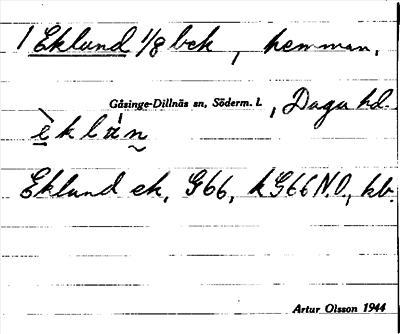 1 Eklund 1/8 bek, hemman,
Gåsinge-Dillnäs sn, Söderm. l., Daga hd.
èklán
Eklund ek, G66, kG66 N.O, kb.
Artur Olsson 1944